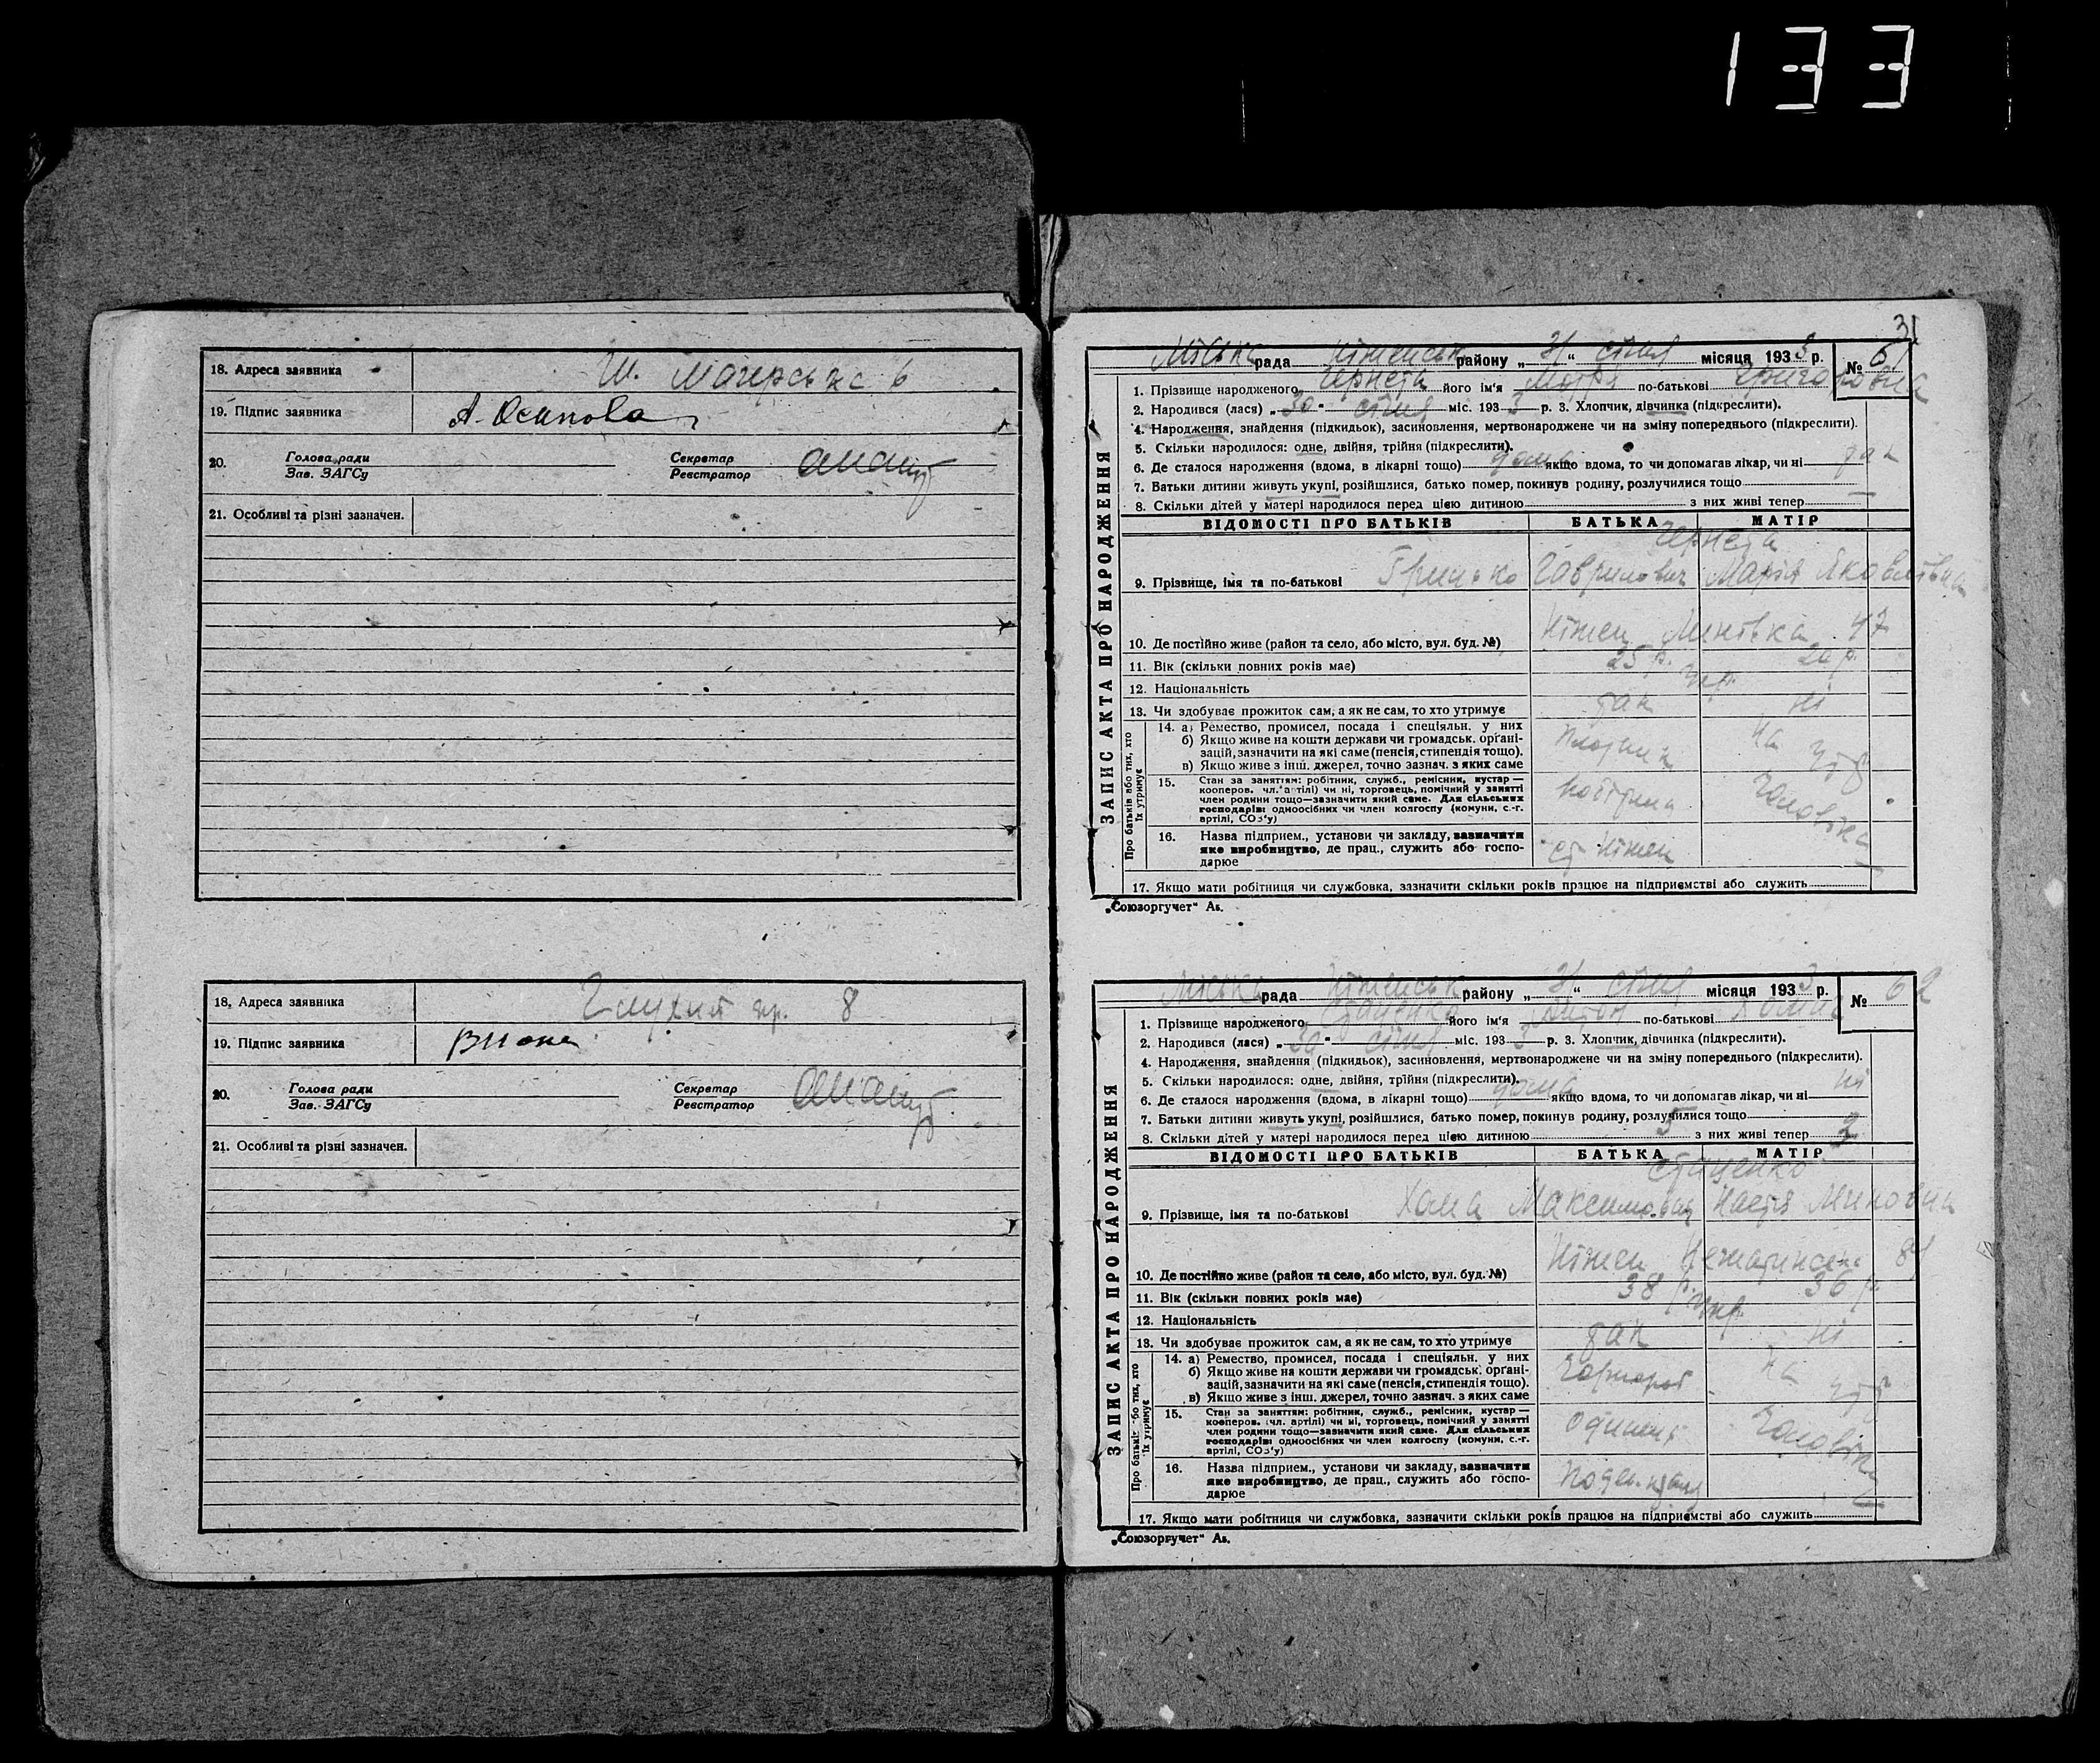 133
18. Адреса заявника Ш. Магерська 6
19. Підпис заявника А. Осипова
20. Голова ради Секретар
Зав. ЗАГСу Реєстратор
21. Особливі та різні зазначен.
18. Адреса заявника пр. 8
19. Підпис заявника
20. Голова ради Секретар
Зав. ЗАГСу Реєстратор
21. Особливі та різні зазначен.
31
Міська рада Ніженськ району „31“ січня місяця 1933 р. № 61
ЗАПИС АКТА ПРО НАРОДЖЕННЯ
1. Прізвище народженого Чернета його ім'я по-батькові Григоровна
2. Народився (лася) „30“ січня міс. 1933 р. 3. Хлопчик, дівчинка (підкреслити).
4. Народження, знайдення (підкидьок), засиновлення, мертвонароджене чи на зміну попереднього (підкреслити).
5. Скільки народилося: одне, двійня, трійня (підкреслити).
6. Де сталося народження (вдома, в лікарні тощо) дома якщо вдома, то чи допомагав лікар, чи ні так
7. Батьки дитини живуть укупі, розійшлися, батько помер, покинув родину, розлучилися тощо
8. Скільки дітей у матері народилося перед цією дитиною з них живі тепер
ВІДОМОСТІ ПРО БАТЬКІВ БАТЬКА МАТІР
Чернета
9. Прізвище, імя та по-батькові Грицько Гаврилович Марія Яковлівна
10. Де постійно живе (район та село, або місто, вул. буд. №) Ніжен 47
11. Вік (скільки повних років має) 25 р. 20 р.
12. Національність Укр.
13. Чи здобуває прожиток сам, а як не сам, то хто утримує так ні
Про батьків або тих, хто їх утримує
14. а) Ремество, промисел, посада і спеціяльн. у них
б) Якщо живе на кошти держави чи громадськ. органі-
зацій, зазначити на які саме (пенсія, стипендія тощо).
в) Якщо живе з інш. джерел, точно зазнач. з яких саме
На утр
15. Стан за заняттям: робітник, служб., ремісник, кустар —
кооперов. чл. артілі) чи ні, торговець, помічний у занятті
член родини тощо—зазначити який саме. Для сільських
господарів: одноосібних чи член колгоспу (комуни, с.-г.
артілі, СОЗ'у)
Чоловіка
16. Назва підприєм., установи чи закладу, зазначити
яке виробництво, де прац., служить або госпо-
дарює
ст Ніжен
17. Якщо мати робітниця чи службовка, зазначити скільки років працює на підприємстві або служить
„Союзоргучет“ А5.
Міська рада Ніженськ району „31“ січня місяця 1933 р. № 62
ЗАПИС АКТА ПРО НАРОДЖЕННЯ
1. Прізвище народженого Стаценко його ім'я Антон по-батькові Хомич
2. Народився (лася) „30“ січня міс. 1933 р. 3. Хлопчик, дівчинка (підкреслити).
4. Народження, знайдення (підкидьок), засиновлення, мертвонароджене чи на зміну попереднього (підкреслити).
5. Скільки народилося: одне, двійня, трійня (підкреслити).
6. Де сталося народження (вдома, в лікарні тощо) дома якщо вдома, то чи допомагав лікар, чи ні ні
7. Батьки дитини живуть укупі, розійшлися, батько помер, покинув родину, розлучилися тощо
8. Скільки дітей у матері народилося перед цією дитиною 5 з них живі тепер 3
ВІДОМОСТІ ПРО БАТЬКІВ БАТЬКА МАТІР
Стаценко
9. Прізвище, імя та по-батькові Хома Максимович Настя Миновна
10. Де постійно живе (район та село, або місто, вул. буд. №) Ніжен
11. Вік (скільки повних років має) 38 р. 36 р.
12. Національність Укр.
13. Чи здобуває прожиток сам, а як не сам, то хто утримує так ні
Про батьків або тих, хто їх утримує
14. а) Ремество, промисел, посада і спеціяльн. у них
б) Якщо живе на кошти держави чи громадськ. органі-
зацій, зазначити на які саме (пенсія, стипендія тощо).
в) Якщо живе з інш. джерел, точно зазнач. з яких саме
На утр
15. Стан за заняттям: робітник, служб., ремісник, кустар —
кооперов. чл. артілі) чи ні, торговець, помічний у занятті
член родини тощо—зазначити який саме. Для сільських
господарів: одноосібних чи член колгоспу (комуни, с.-г.
артілі, СОЗ'у)
Чоловіка
16. Назва підприєм., установи чи закладу, зазначити
яке виробництво, де прац., служить або госпо-
дарює
17. Якщо мати робітниця чи службовка, зазначити скільки років працює на підприємстві або служить
„Союзоргучет“ А5.